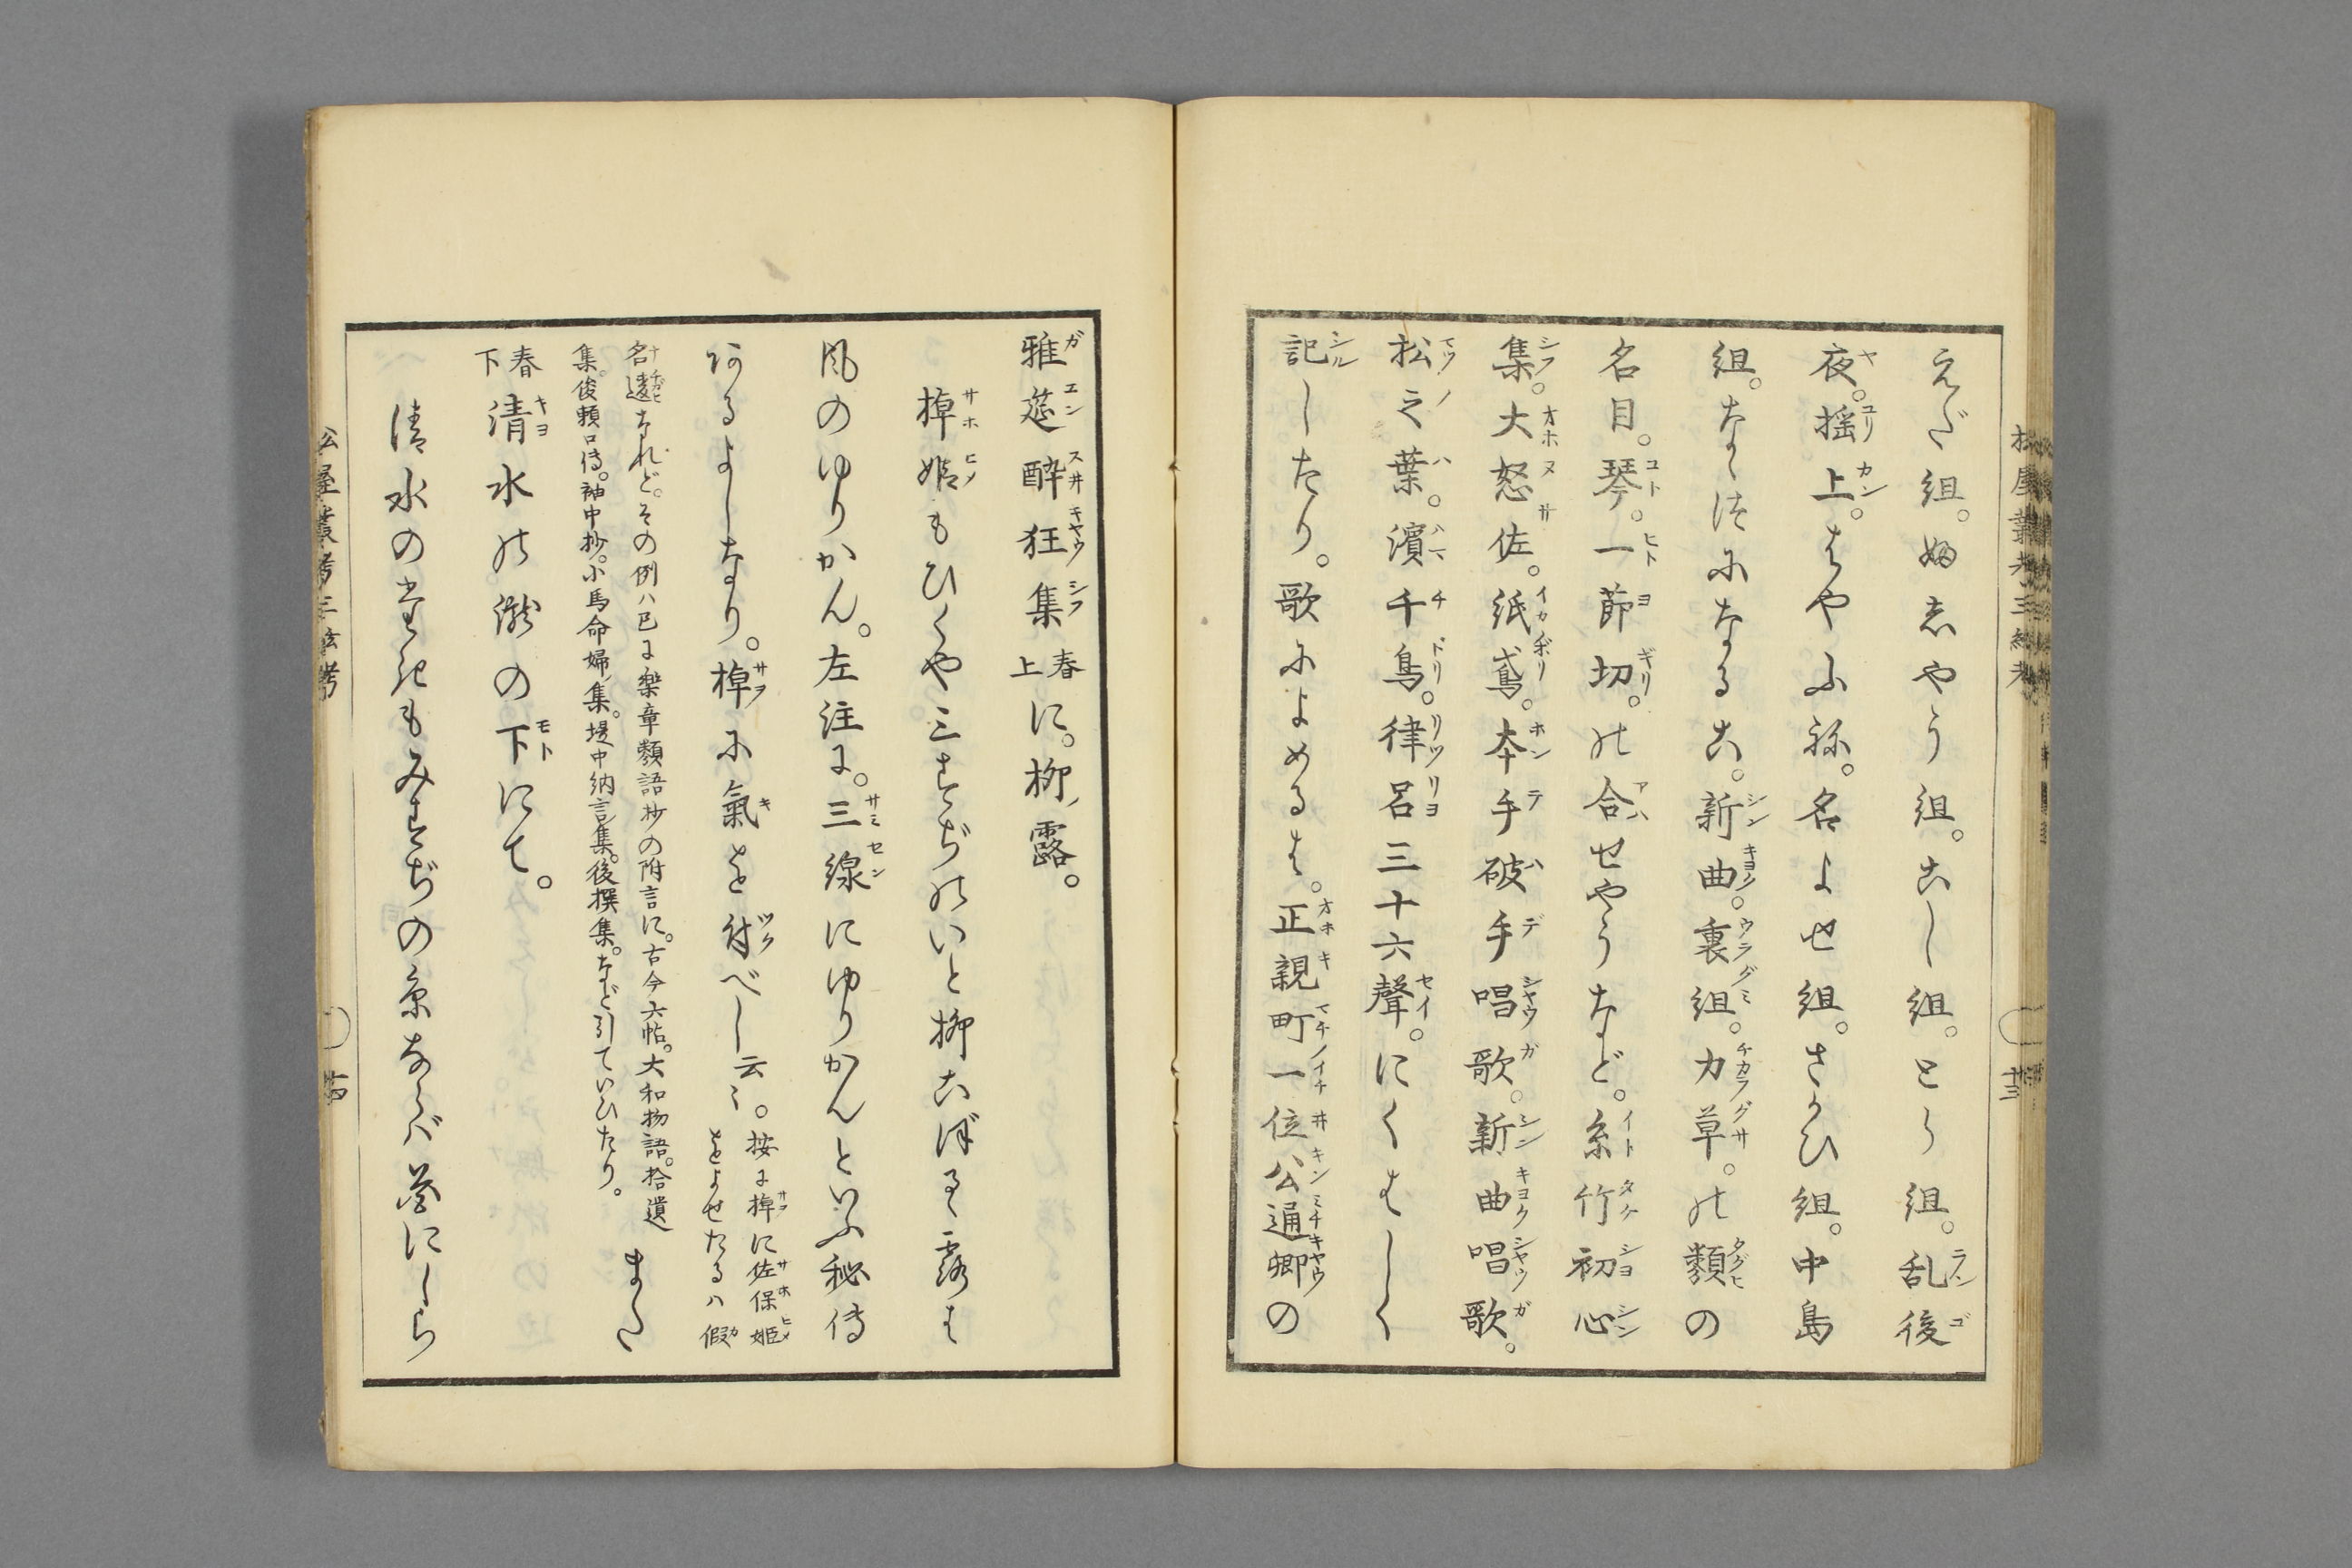 えだ組。婦志やう組。古し組。とら組。乱後
夜。揺上。はやふ祢。名よせ組。さらひ組。中島
組。なげ津になる古。新曲。裏組。力草。の類の
名目。琴。一節切。の合せやうなど。糸竹初心
集。大怒佐。紙鳶。本手破手唱歌。新曲唱歌。
松之葉。濱千鳥。律呂三十六聲。にくはしく
記したり。歌によめるは。正親町一位公通卿の
松屋叢考三絃考
十三
雅莚酔狂集春上に。柳ノ露。
棹姫もひくや三すぢのいと柳こぼるゝ露は
風のゆりかん。左注に。三線にゆりかんといふ秘傳
阿るよしなり。棹に氣を付べし云々。按に棹に佐保姫をよせたるハ假
名遣なれど。その例ハ已に樂章類語抄の附言に。古今六帖。大和物語。拾遺
集。俊頼口傳。袖中抄。小馬命婦集。堤中納言集。後撰集。など引ていひたり。また
春下清水の瀧の下にて。
清水の堂紀もみすぢの糸ならバ花にしら
松屋叢考三絃考
十四